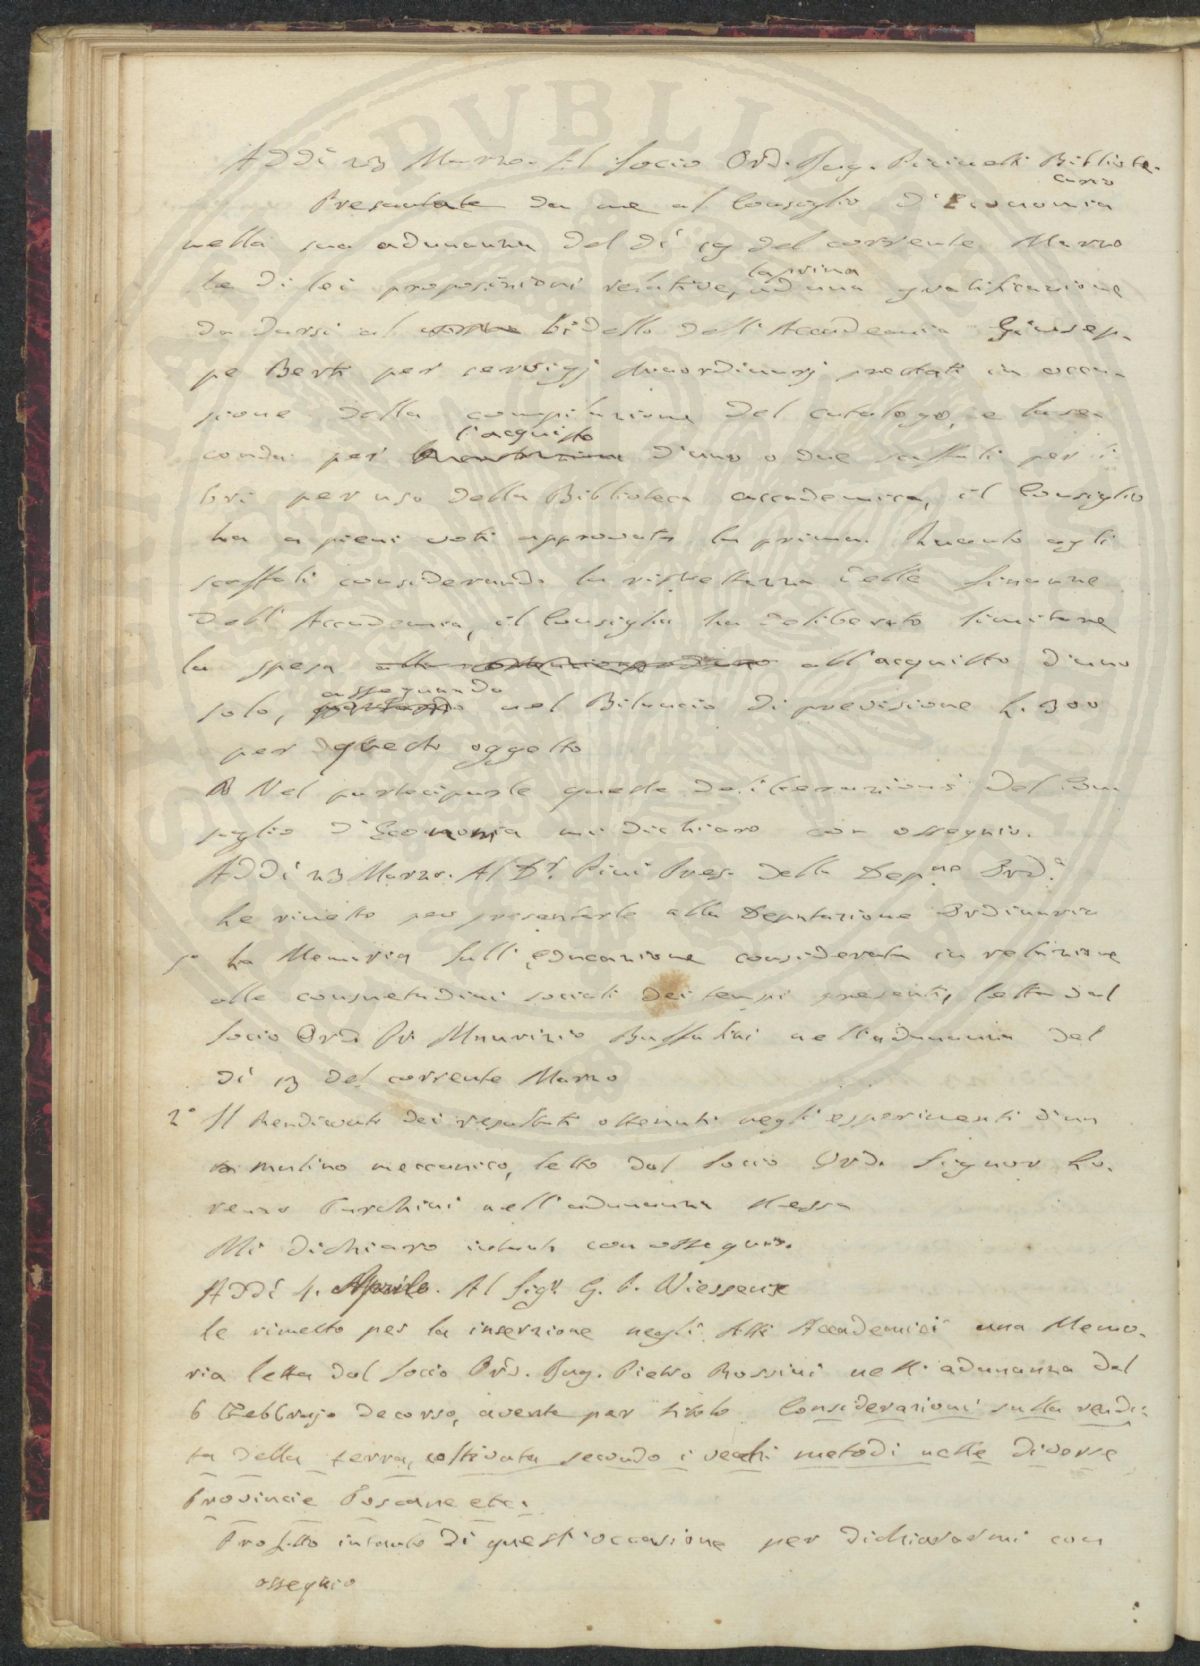 Addì 23 Marzo. Al Socio Ord. Ing. Bibliote-
cario
Presentate da me al Consiglio d'Economia
nella sua adunanza del dì 19 del corrente Marzo
le di lei proposizioni relative, la prima ad una gratificazione
da darsi al bidello dell'Accademia Giusep-
pe Berti per servigj straordinarj prestati in occa-
sione della compilazione del catalogo, e la se-
conda per l'acquisto d'uno o due scaffali per i li-
bri per uso della Biblioteca accademica, il Consiglio
ha a pieni voti approvata la prima. Quanto agli
scaffali considerando la ristrettezza delle finanze
dell'Accademia, il Consiglio ha deliberato limitare
la spesa all'acquisto d'uno
solo, assegnando nel Bilancio di previsione L. 300
per questo oggetto
Nel partecipare queste deliberazioni del Con-
siglio d'Economia mi dichiaro con ossequio.
Addì 23 Marzo. Al Dr. Pini Pres. della Depne Ordia
Le rimetto per presentarle alla Deputazione Ordinaria
1° La Memoria sull'educazione considerata in relazione
alle consuetudini sociali dei tempi presenti, letta dal
Socio Ord. Maurizio Buffalini nell'adunanza del
dì 13 del corrente Marzo
2° Il Rendiconto dei resultati ottenuti negli esperimenti d'un
mulino meccanico, letto dal Socio Ord. Signor Lo-
renzo Turchini nell'adunanza stessa
Mi dichiaro intanto con ossequio.
Addì 4. Aprile. Al Sigr. G. P. Viesseux
Le rimetto per la inserzione negli Atti Accademici una Memo-
ria letta dal Socio Ord. Ing. Pietro Rossini nell'adunanza del
6 Febbrajo decorso, avente per titolo Considerazioni sulla rendi-
ta della terra, coltivata secondo i vecchi metodi nelle diverse
Provincie Toscane etc.
Profitto intanto di quest'occasione per dichiararmi con
ossequio